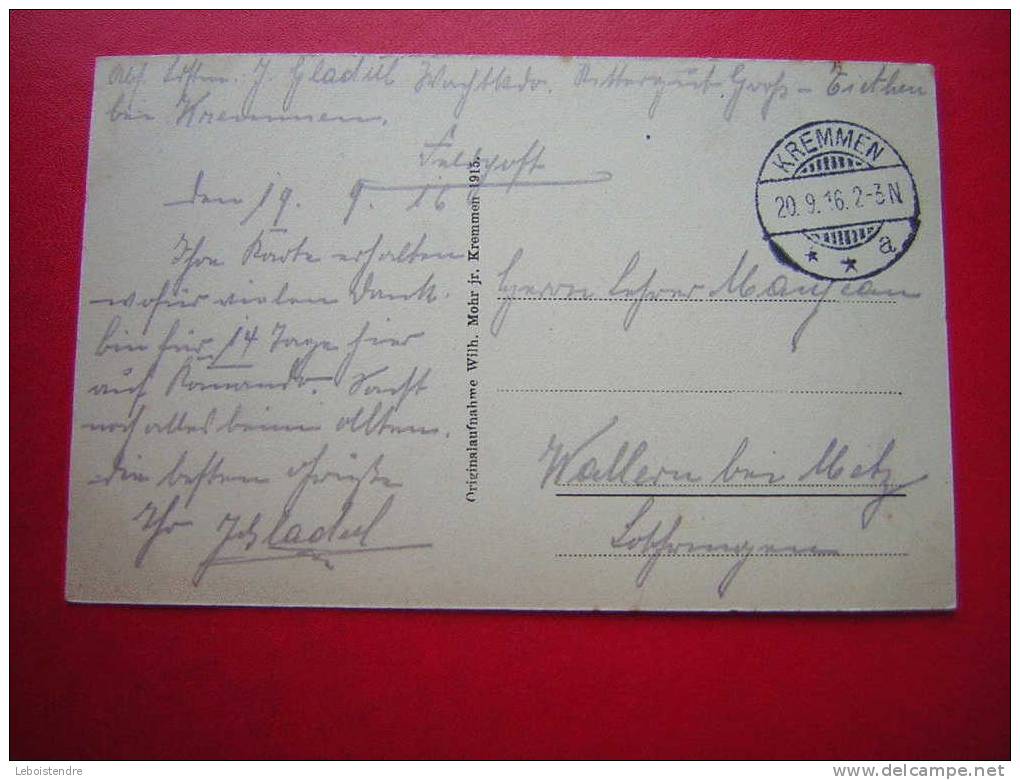 Abs. Lstm. J. Gladul Wachtkdo. Rittergut Groß-Ziethen
bei Kremmen.
Feldpost
den 19. 9. 16
Ihre Karte erhalten
wofür vielen Dank.
bin für 14 Tage hier
auf Komando. Sonst
noch alles beim Alten.
die besten Grüße
Ihr J. Gladul
Originalaufnahme Wilh. Mohr jr. Kremmen 1915.
KREMMEN
20. 9. 16. 2-3 N
* * a
Herrn Lehrer Manjean
Wallern bei Metz
Lothringen
Leboistendre
www.delcampe.net